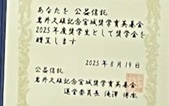 あなたを 公益信託
岩井久雄記念宮城奨学育英基金
2025年度奨学生として奨学金を
贈呈します
2025年8月19日
公益信託
岩井久雄記念宮城奨学育英基金
運営委員長 滝澤 博